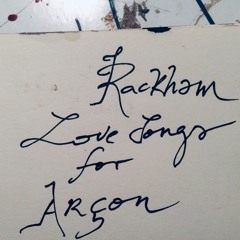 Rackham
Love Songs
for
Argon